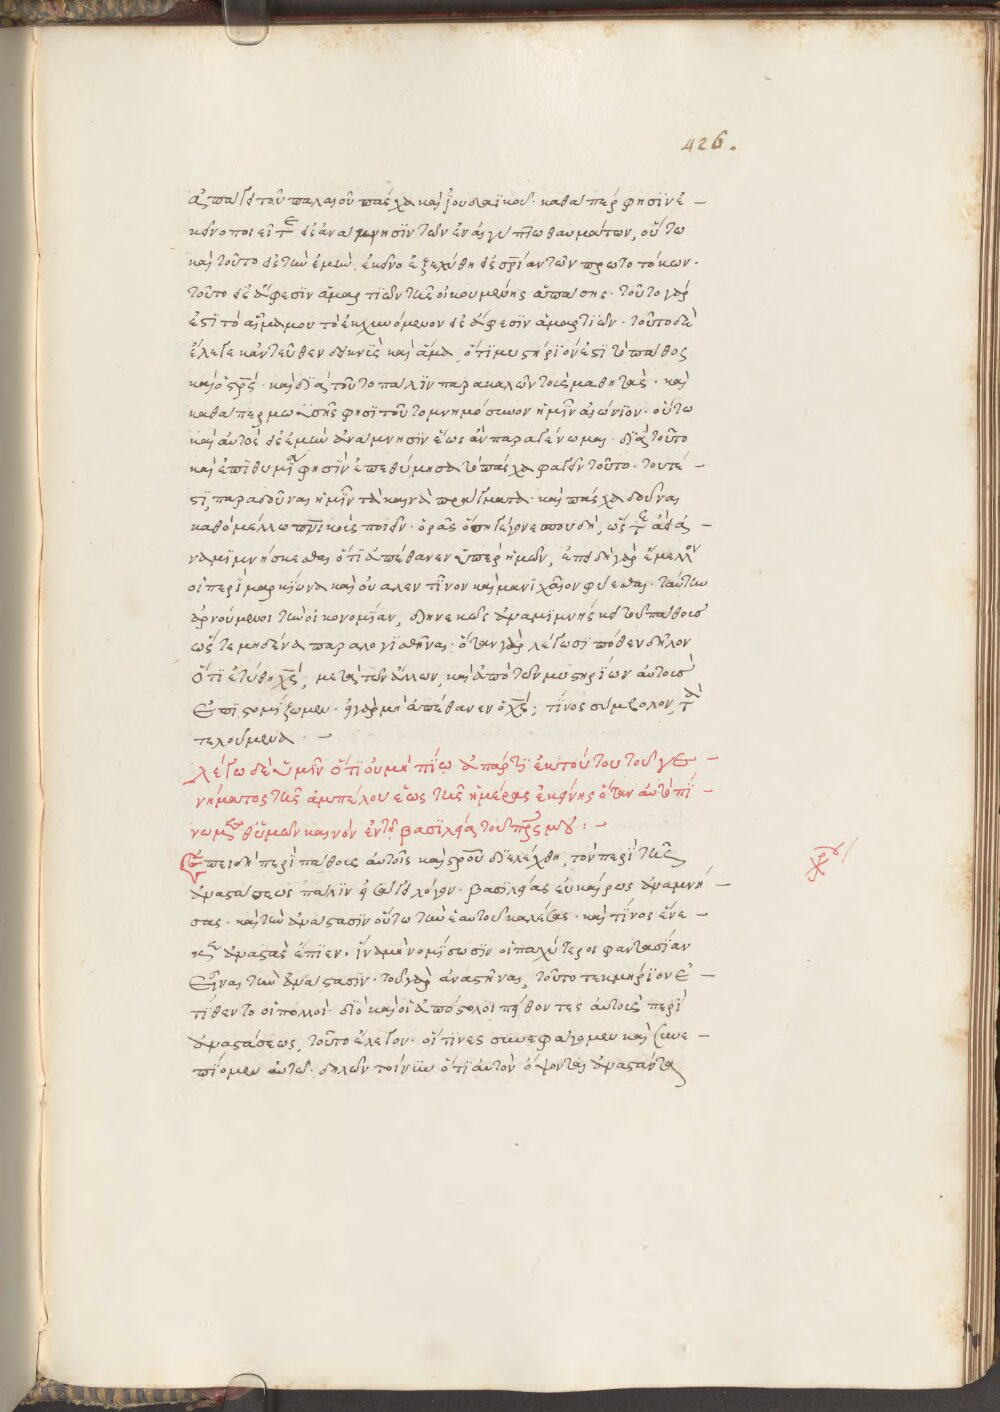 426.
ἀπάγει τοῦ παλαιοῦ πάσχα καὶ ἰουδαϊκοῦ. καθάπερ φησὶν ἐ
κεῖνο ποιεῖτε εἰς ἀνάμνησιν τῶν ἐν αἰγύπτω θαυμάτων, οὕτω
καὶ τοῦτο εἰς τὴν ἐμήν. ἐκεῖνο ἐξεχύθη εἰς σρίαν τῶν πρωτοτόκων.
τοῦτο εἰς ἄφεσιν ἁμαρτιῶν τῆς οἰκουμένης ἁπάσης. τοῦτο γάρ
ἐστι τὸ αἷμά μου τὸ ἐκχυνόμενον εἰς ἄφεσιν ἁμαρτιῶν. τοῦτο δὲ
ἔλεγε κἀντεῦθεν δεικνὺς καὶ ἅμα, ὅτι μυστήριόν ἐστι τὸ πάθος
καὶ ὁ στρός. καὶ διὰ τούτο πάλιν παρακαλῶν τοὺς μαθητάς. καὶ
καθάπερ μωσῆς φησὶ τοῦτο μνημόσυνον ἡμῖν αἰώνιον. οὕτω
καὶ αὐτὸς εἰς ἐμὴν ἀνάμνησιν ἕως ἂν παραγένωμαι. διὰ τοῦτο
καὶ ἐπιθυμία φησὶν ἐπεθύμησα τὸ πάσχα φαγεῖν τοῦτο. τουτέ
στι παραδοῦναι ἡμῖν τὰ καινὰ πράγματα. καὶ πάσχα δοῦναι
καθὸ μέλλω πνικοὺς ποιεῖν. ὁρᾶς ὅση γέγονε σπουδὴ, ὥστε ἀεὶ ἀ
ναμιμνήσκεσθαι ὅτι ἀπέθανεν ὑπὲρ ἡμῶν, ἐπειδὴ γὰρ ἔμελλον
οἱ περὶ μαρκίωνα καὶ οὐαλεντῖνον καὶ μανιχαῖον φύεσθαι. ταύτην
ἀρνούμενοι τὴν οἰκονομίαν, διηνεκῶς ἀναμιμνήσκει τοῦ πάθους
ὥστε μηδένα παραλογισθῆναι. ὅταν γὰρ λέγωσι πόθεν δῆλον
ὅτι ἐτύθη χς; μετὰ τῶν ἄλλων, καὶ ἀπὸ τῶν μυστηρίων αὐτοὺς
ἐπιστομίζομεν. εἰ γὰρ μὴ ἀπέθανεν ὁ χς; τίνος σύμβολον, τὰ
τελούμενα.
λέγω δὲ ὑμῖν ὅτι οὐ μὴ πίω ἀπάρτι ἐκ τούτου τοῦ γε
νήματος τῆς ἀμπέλου ἕως τῆς ἡμέρας ἐκείνης ὅταν αὐτὸ πί
νω μεθ' ὑμῶν καινὸν ἐν τῆ βασιλεία τοῦ πρς μου:
Ἐπειδὴ περὶ πάθους αὐτοῖς καὶ στροῦ διελέχθη, τὸν περὶ τῆς
ἀναστάσεως πάλιν εἰσάγει λόγον. βασιλείας εὐκαίρως ἀναμνή
σας. καὶ τὴν ἀνάστασιν οὕτω τὴν ἑαυτοῦ καλέσας. καὶ τίνος ἕνε
κεν ἀναστὰς ἔπιεν. ἵνα μὴ νομίσωσιν οἱ παχύτεροι φαντασίαν
εἶναι τὴν ἀνάστασιν. τοῦ γὰρ ἀναστῆναι, τοῦτο τεκμήριον ἐ
τίθεντο οἱ πολλοί. διὸ καὶ οἱ ἀπόστολοι πείθοντες αὐτοὺς περὶ
ἀναστάσεως, τοῦτο ἔλεγον. οἵτινες συνεφάγομεν καὶ συνε
πίομεν αὐτῶ. δηλῶν τοίνυν ὅτι αὐτὸν ὄψονται ἀναστάντα